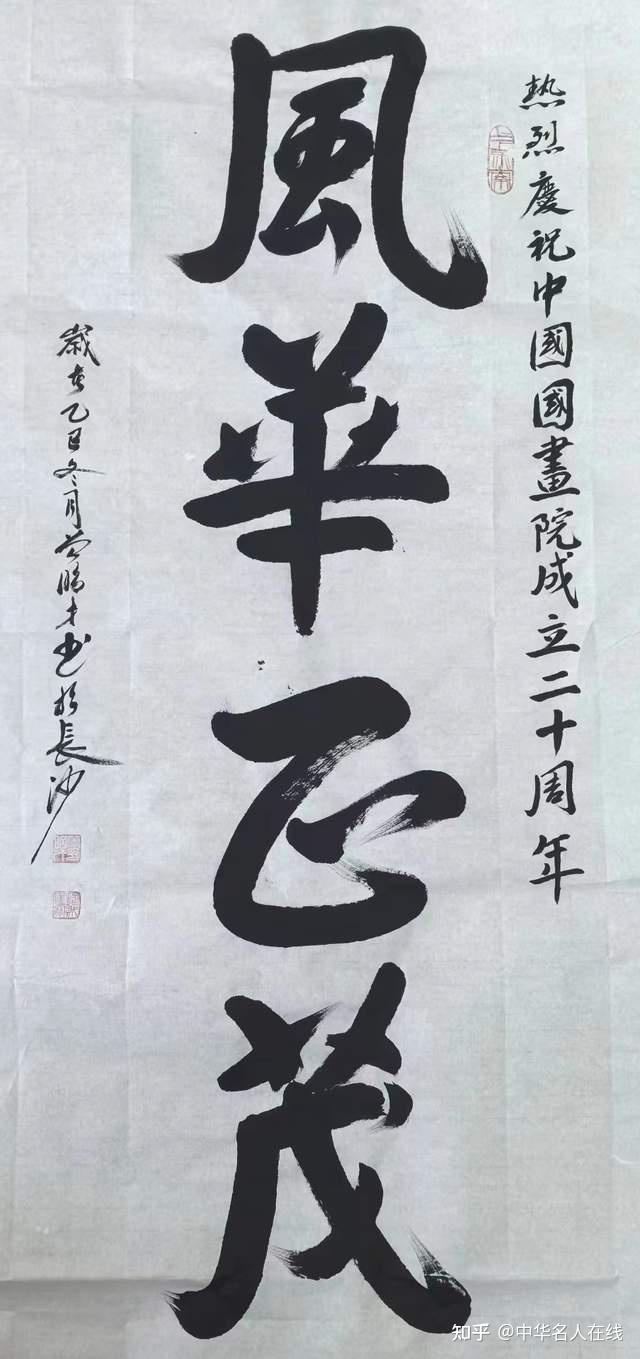 熱烈慶祝中國國畫院成立二十周年
風華正茂
歲在乙巳冬月 勝才书於長沙
知乎 @中华名人在线